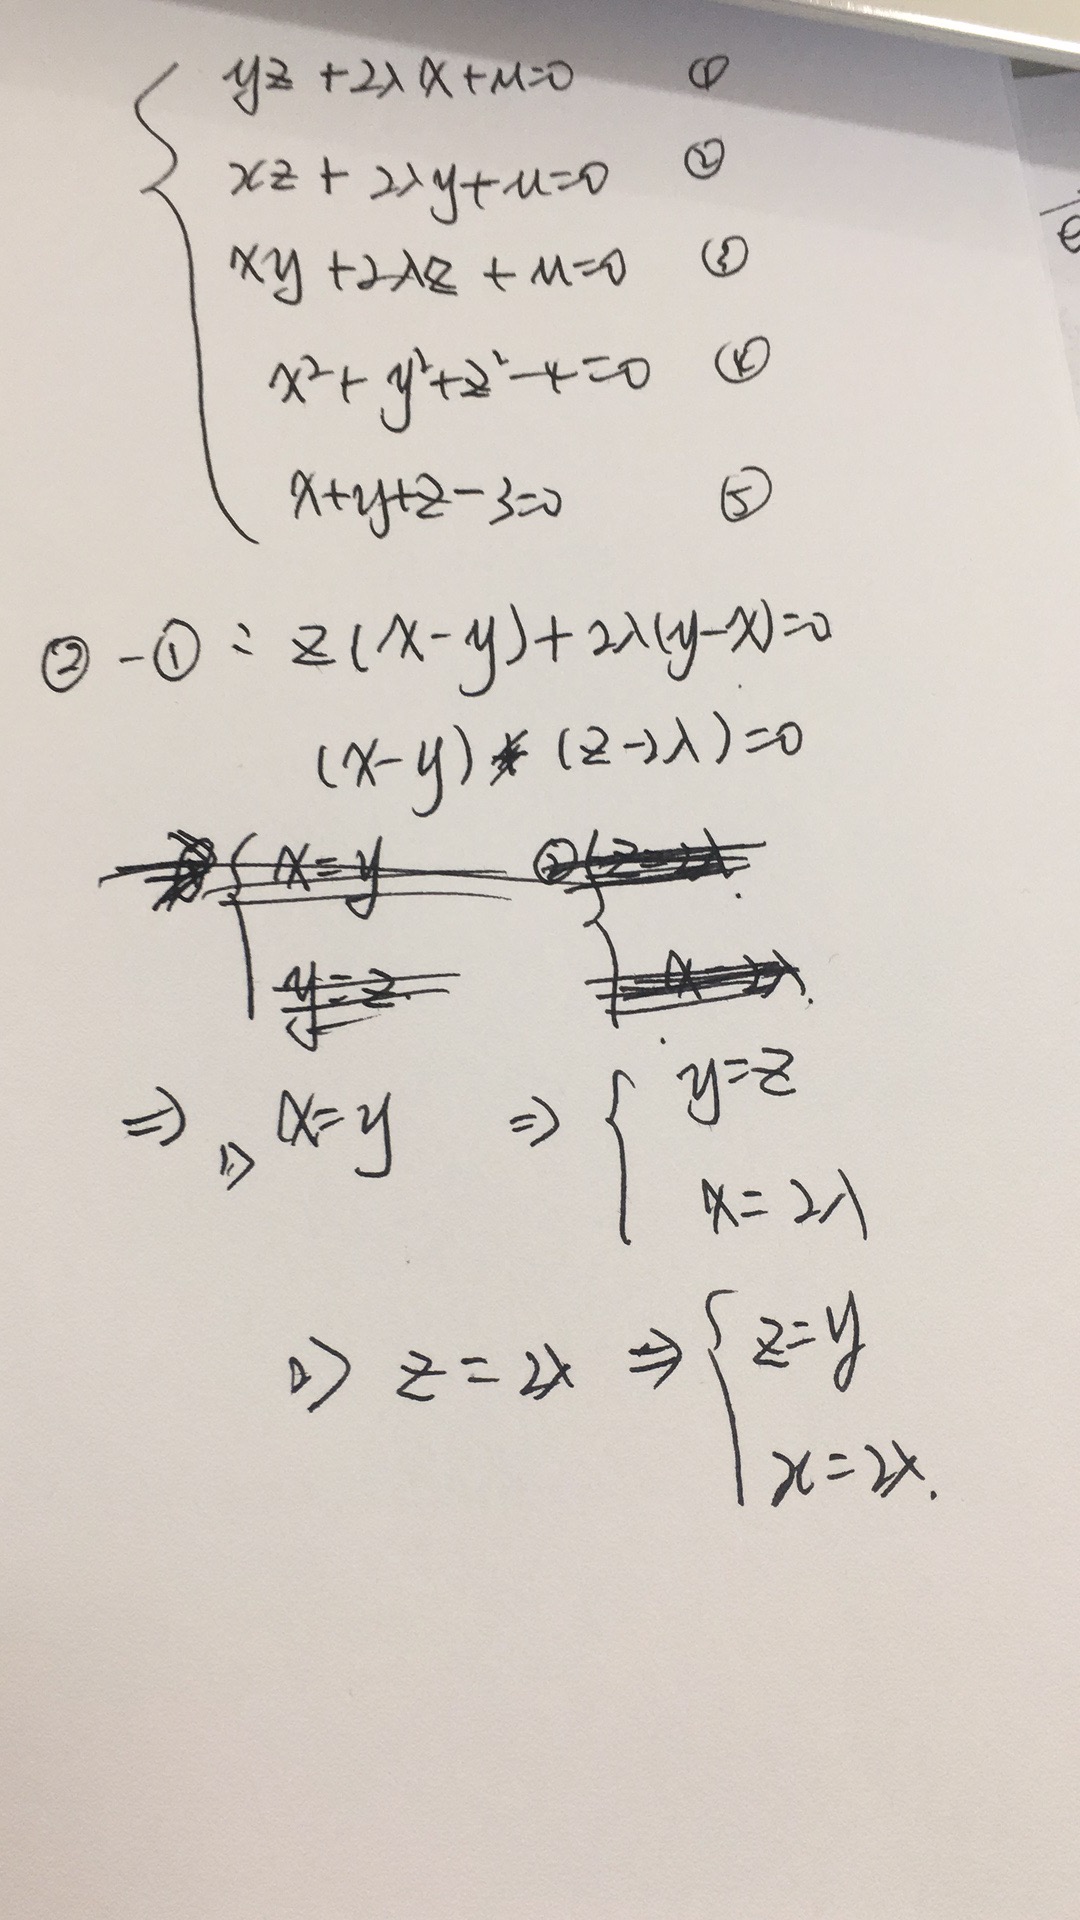 yz + 2λx + μ = 0 ①
xz + 2λy + μ = 0 ②
xy + 2λz + μ = 0 ③
x² + y² + z² - 4 = 0 ④
x + y + z - 3 = 0 ⑤
② - ① : z(x-y) + 2λ(y-x) = 0
(x-y) (z-2λ) = 0
x = y ② z = 2λ
y = z x = 2λ
⇒ 1) x = y ⇒ { y = z
x = 2λ
2) z = 2λ ⇒ { z = y
x = 2λ.